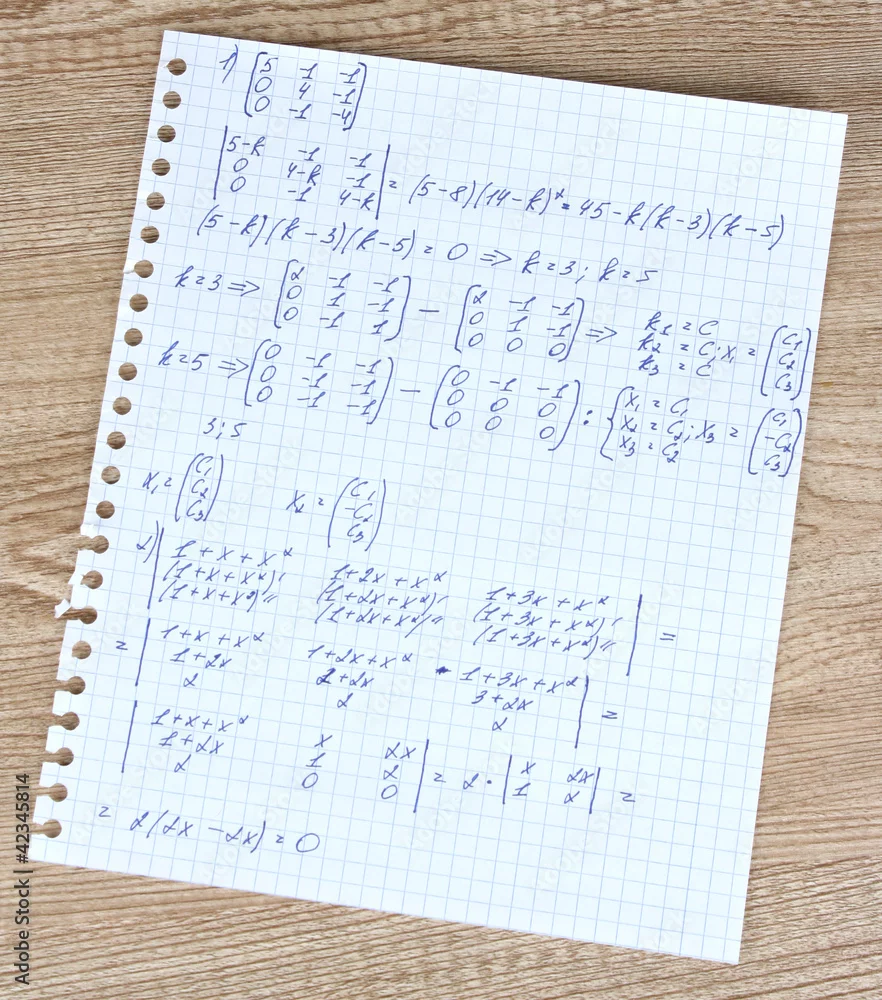 1) [5 1 -1
0 4 -1
0 -1 -4]
|5-k -1 -1
0 4-k -1
0 -1 4-k| = (5-8)(14-k)² = 45-k(k-3)(k-5)
(5-k)(k-3)(k-5) = 0 => k=3; k=5
k=3 => (2 -1 -1
0 1 -1
0 -1 1) - (2 -1 -1
0 1 -1
0 0 0) => k₁ = C
k₂ = C; x₁ = (C₁
k₃ = C C₂
C₃)
k=5 => (0 -1 -1
0 -1 -1
0 -1 -1) - (0 -1 -1
0 0 0
0 0 0) : {x₁ = C₁
x₂ = C₂; x₃ = (C₁
x₃ = C₂ -C₂
C₃)
3; 5
x₁ = (C₁
C₂
C₃) x₂ = (C₁
-C₂
C₃)
2) |1+x+x² 1+2x+x² 1+3x+x²
(1+x+x²)' (1+2x+x²)' (1+3x+x²)'
(1+x+x²)'' (1+2x+x²)'' (1+3x+x²)''| =
= |1+x+x² 1+2x+x² 1+3x+x²
1+2x 2+2x 3+2x
2 2 2| =
|1+x+x² x 2x
1+2x 1 2
2 0 0| = 2·|x 2x
1 2| =
= 2(2x-2x) = 0
Adobe Stock | #42345814
Adobe Stock